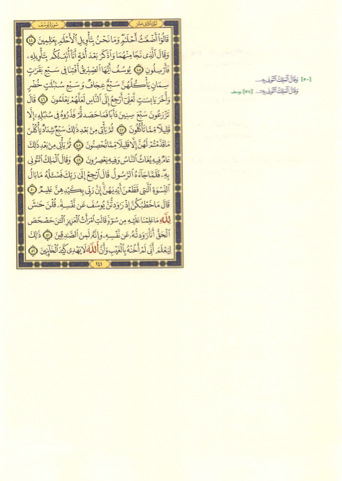 سورة يوسف
قَالُوٓا۟ أَضْغَـٰثُ أَحْلَـٰمٍ ۖ وَمَا نَحْنُ بِتَأْوِيلِ ٱلْأَحْلَـٰمِ بِعَـٰلِمِينَ ٤٤
وَقَالَ ٱلَّذِى نَجَا مِنْهُمَا وَٱدَّكَرَ بَعْدَ أُمَّةٍ أَنَا۠ أُنَبِّئُكُم بِتَأْوِيلِهِۦ
فَأَرْسِلُونِ ٤٥ يُوسُفُ أَيُّهَا ٱلصِّدِّيقُ أَفْتِنَا فِى سَبْعِ بَقَرَٰتٍ
سِمَانٍ يَأْكُلُهُنَّ سَبْعٌ عِجَافٌ وَسَبْعِ سُنۢبُلَـٰتٍ خُضْرٍ
وَأُخَرَ يَابِسَـٰتٍ لَّعَلِّىٓ أَرْجِعُ إِلَى ٱلنَّاسِ لَعَلَّهُمْ يَعْلَمُونَ ٤٦ قَالَ
تَزْرَعُونَ سَبْعَ سِنِينَ دَأَبًا فَمَا حَصَدتُّمْ فَذَرُوهُ فِى سُنۢبُلِهِۦٓ إِلَّا
قَلِيلًا مِّمَّا تَأْكُلُونَ ٤٧ ثُمَّ يَأْتِى مِنۢ بَعْدِ ذَٰلِكَ سَبْعٌ شِدَادٌ يَأْكُلْنَ
مَا قَدَّمْتُمْ لَهُنَّ إِلَّا قَلِيلًا مِّمَّا تُحْصِنُونَ ٤٨ ثُمَّ يَأْتِى مِنۢ بَعْدِ ذَٰلِكَ
عَامٌ فِيهِ يُغَاثُ ٱلنَّاسُ وَفِيهِ يَعْصِرُونَ ٤٩ وَقَالَ ٱلْمَلِكُ ٱئْتُونِى
بِهِۦ ۖ فَلَمَّا جَآءَهُ ٱلرَّسُولُ قَالَ ٱرْجِعْ إِلَىٰ رَبِّكَ فَسْـَٔلْهُ مَا بَالُ
ٱلنِّسْوَةِ ٱلَّـٰتِى قَطَّعْنَ أَيْدِيَهُنَّ ۚ إِنَّ رَبِّى بِكَيْدِهِنَّ عَلِيمٌ ٥٠
قَالَ مَا خَطْبُكُنَّ إِذْ رَٰوَدتُّنَّ يُوسُفَ عَن نَّفْسِهِۦ ۚ قُلْنَ حَـٰشَ
لِلَّهِ مَا عَلِمْنَا عَلَيْهِ مِن سُوٓءٍ ۚ قَالَتِ ٱمْرَأَتُ ٱلْعَزِيزِ ٱلْـَٔـٰنَ حَصْحَصَ
ٱلْحَقُّ أَنَا۠ رَٰوَدتُّهُۥ عَن نَّفْسِهِۦ وَإِنَّهُۥ لَمِنَ ٱلصَّـٰدِقِينَ ٥١ ذَٰلِكَ
لِيَعْلَمَ أَنِّى لَمْ أَخُنْهُ بِٱلْغَيْبِ وَأَنَّ ٱللَّهَ لَا يَهْدِى كَيْدَ ٱلْخَآئِنِينَ ٥٢
٢٤١
وَقَالَ ٱلْمَلِكُ ٱئْتُونِى بِهِۦ...
وَقَالَ ٱلْمَلِكُ ٱئْتُونِى بِهِۦ... يوسف